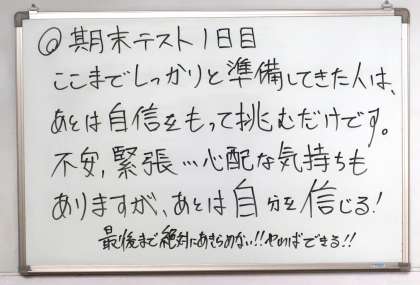 ◎期末テスト1日目
ここまでしっかりと準備してきた人は、
あとは自信をもって挑むだけです。
不安,緊張…心配な気持ちも
ありますが、あとは自分を信じる!
最後まで絶対にあきらめない!!やればできる!!